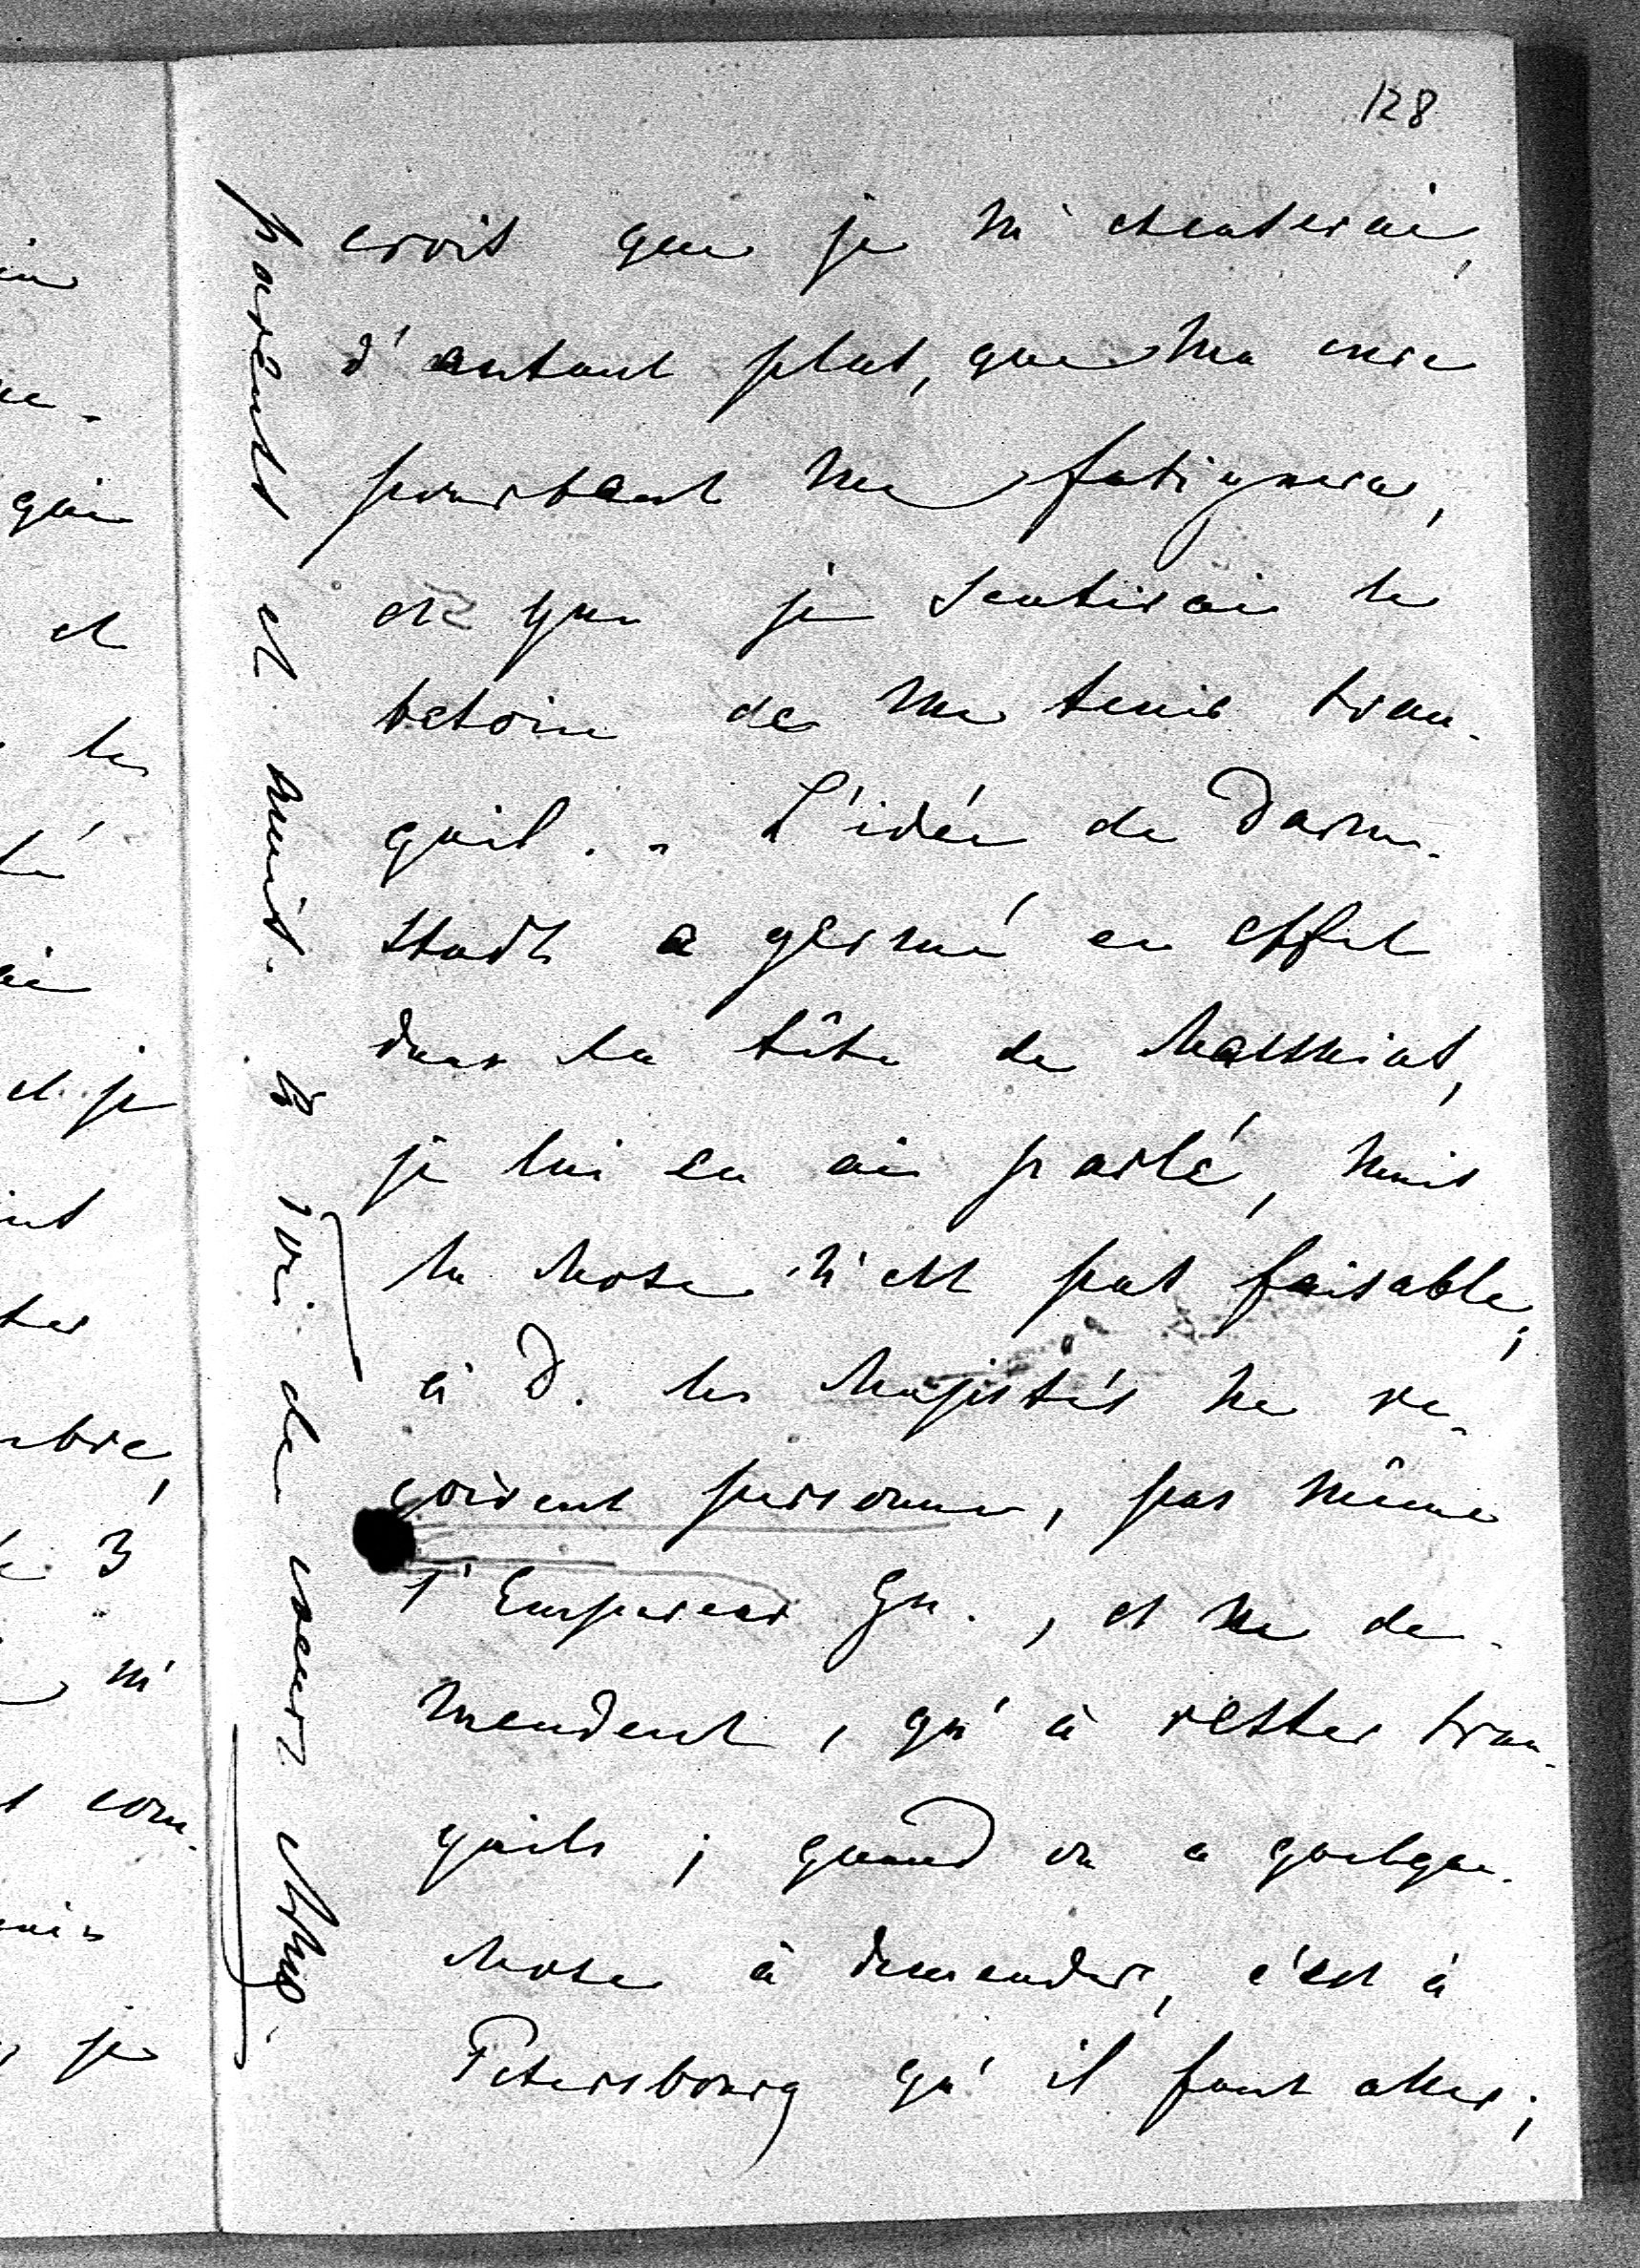 128
crois que je m'
d'autant plus, que ma cure
pourtant me fatiguera,
et que je sentirai le
besoin de me tenir tran-
quil. - L'idée de Darm-
stadt a germé en effet
dans la tête de
je lui en ai parlé, mais
la chose n'est pas faisable,
à D. les Majestés ne re-
çoivent personne, pas même
l'Empereur Gu., et ne de-
mendent, qu'à rester tran-
quils ; quand on a quelque
chose à demender, c'est à
Petersbourg qu'il faut aller ;
parents et amis. à toi de coeur